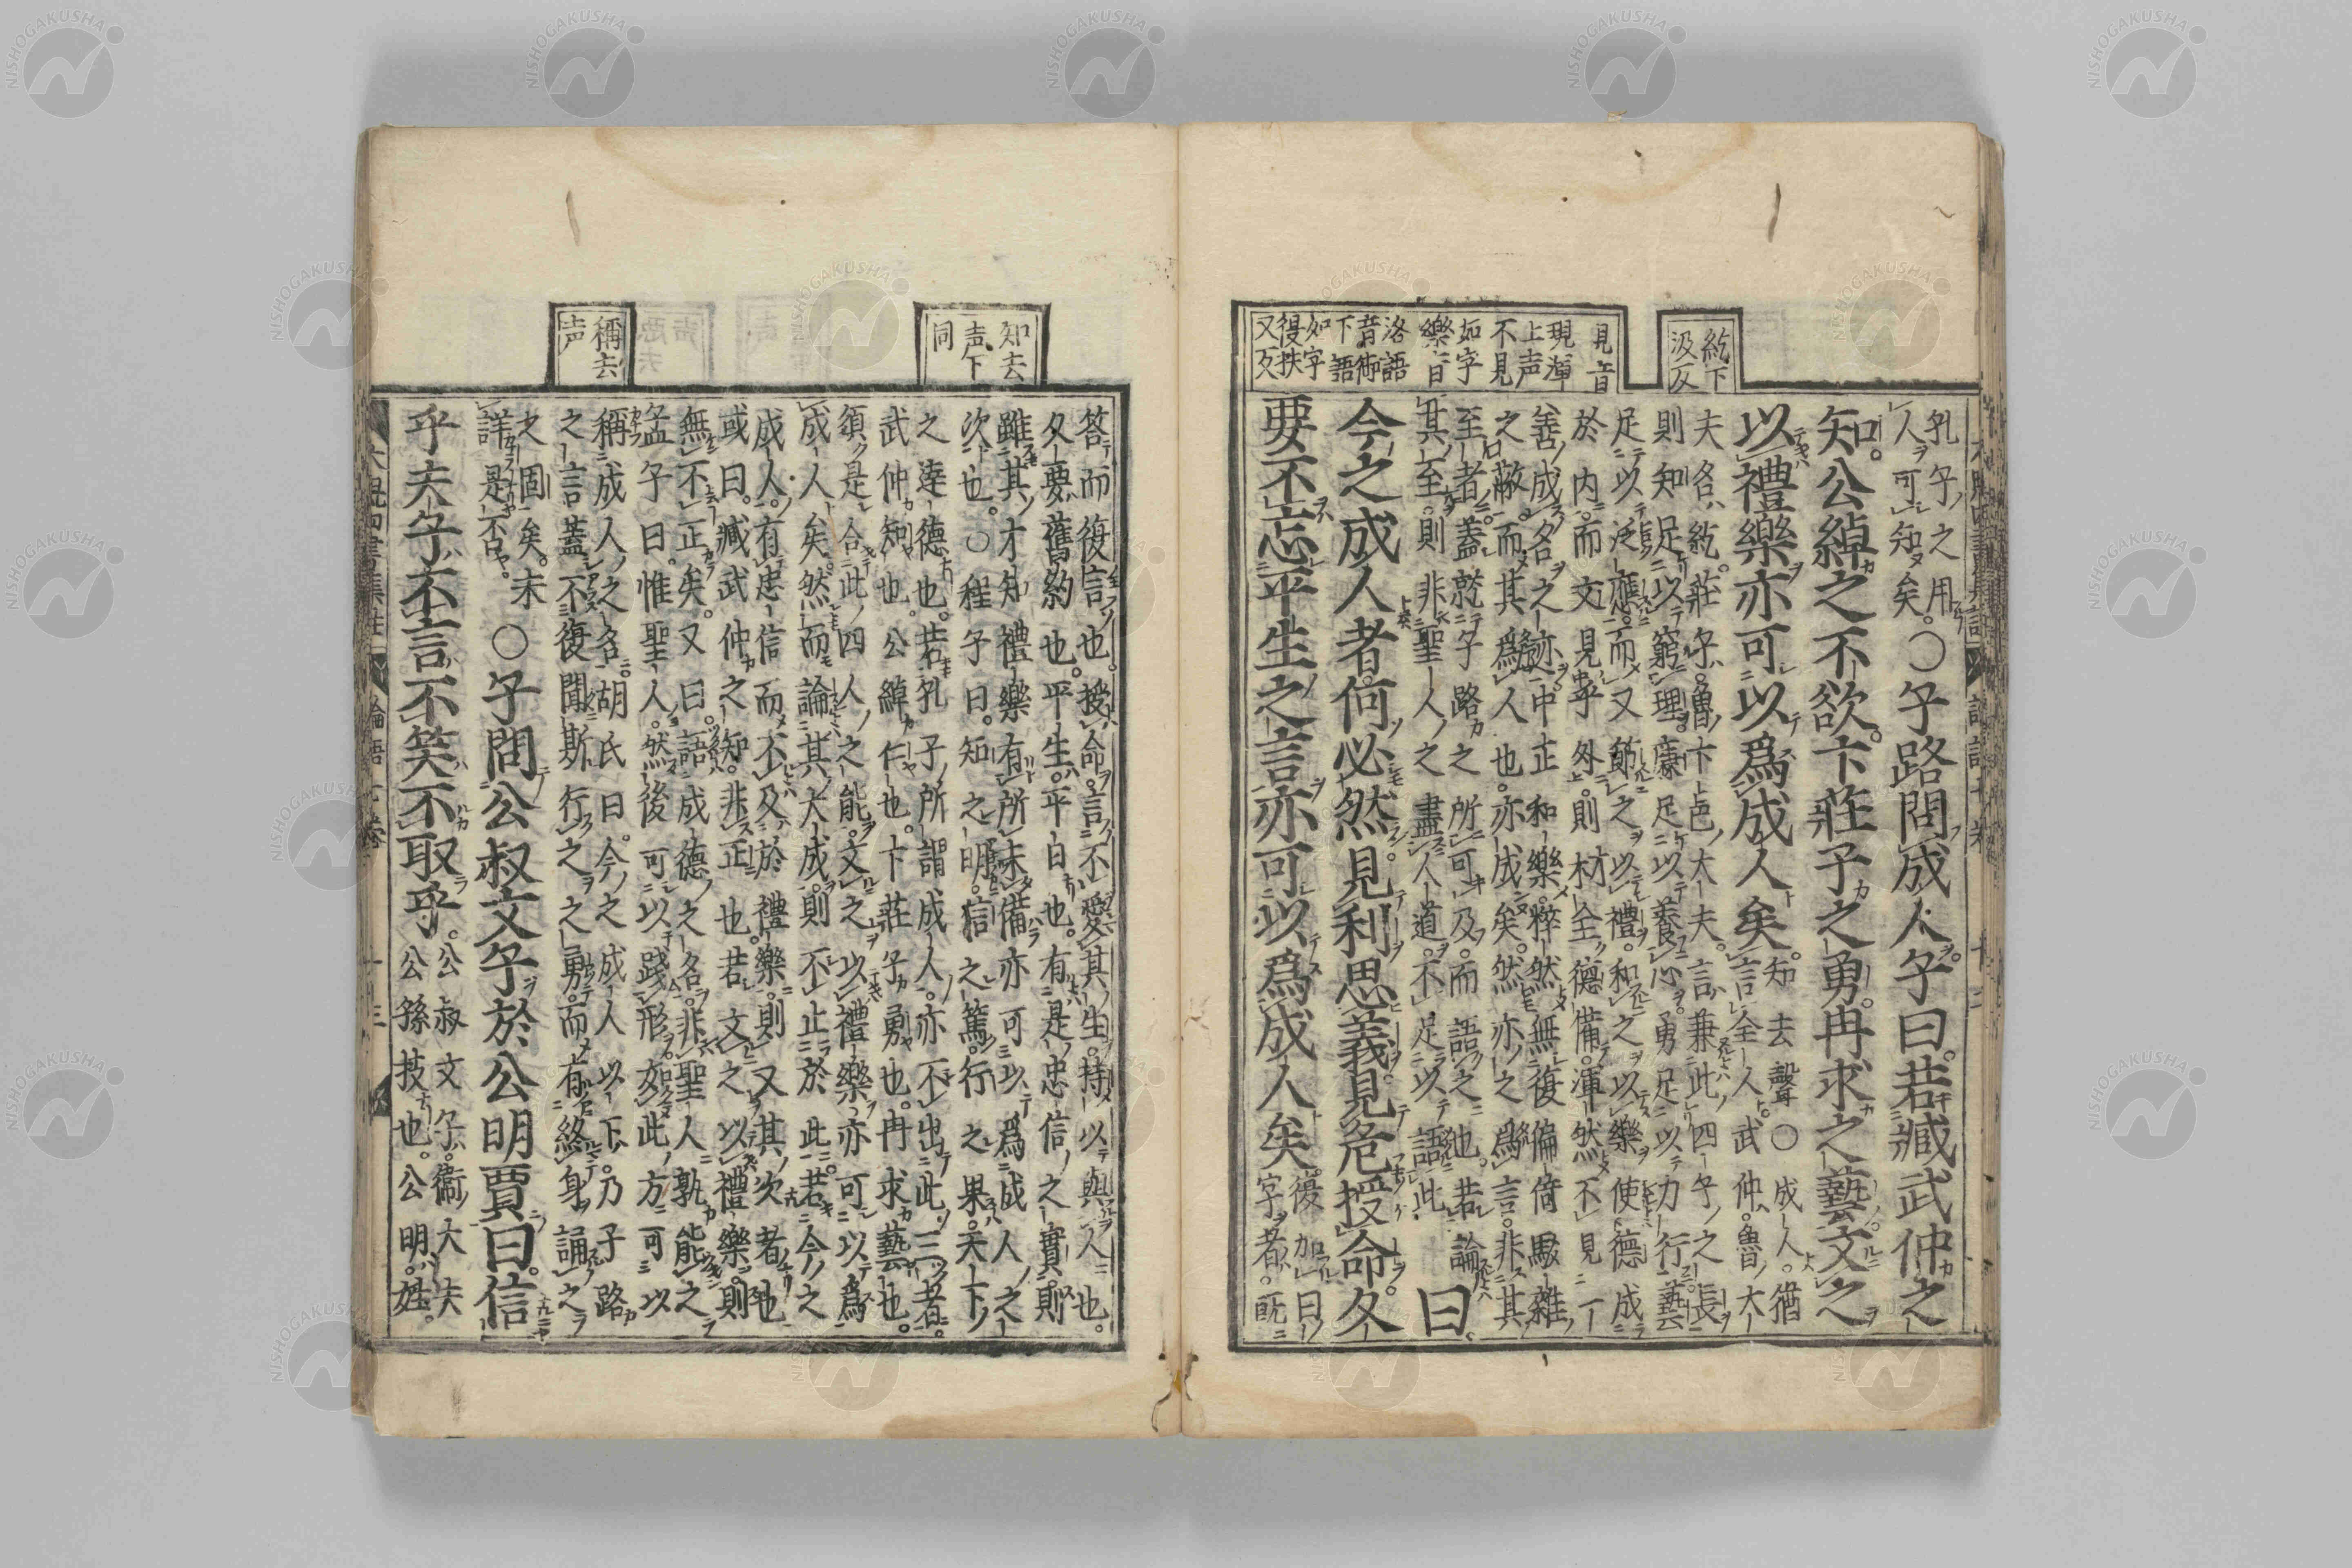 紇下
汲反
見音
現渾
上声
不見
如字
樂音
洛語
音御
下語
如字
復扶
又反
孔子之用
人可知矣。
○子路問成人子曰。若臧武仲之
知。公綽之不欲。卞莊子之勇。冉求之藝。文之
以禮樂亦可以爲成人矣。
知去聲○成人。猶
言全人。武仲。魯大
夫名紇。莊子。魯卞邑大夫。言兼此四子之長
則知足以窮理。廉足以養心。勇足以力行。藝
足以泛應。而又節之以禮。和之以樂。使德成
於内。而文見乎外。則材全德備。渾然不見一
善成名之迹。中正和樂。粹然無復偏倚駁雜
之蔽。而其爲人也。亦成矣。然亦之爲言。非其
至者。蓋就子路之所可及。而語之也。若論
其至。則非聖人之盡人道。不足以語此。
曰
今之成人者何必然。見利思義。見危授命。久
要不忘平生之言亦可以爲成人矣。
復加曰
字者。既
知去
声下
同
稱去
声
答而復言也。授命。言不愛其生。持以與人也。
久要舊約也。平生。平日也。有是忠信之實。則
雖其才知禮樂有所未備亦可以爲成人之
次也。○程子曰。知之明。信之篤。行之果。天下
之達德也。若孔子所謂成人。亦不出此三者。
武仲知也。公綽仁也。卞莊子勇也。冉求藝也。
須是合此四人之能。文之以禮樂亦可以爲
成人矣。然而論其大成。則不止於此。若今之
成人。有忠信而不及於禮樂。則又其次者也
或曰。臧武仲之知。非正也。若文之以禮樂。則
無不正矣。又曰。語成德之名。非聖人孰能之
孟子曰。惟聖人。然後可以踐形。如此方可以
稱成人之名。胡氏曰。今之成人以下。乃子路
之言。蓋不復聞斯行之之勇。而有終身誦之
之固矣。未
詳是否。
○子問公叔文子於公明賈曰。信
乎夫子不言不笑不取乎。
公叔文子。衞大夫
公孫枝也。公明。姓。